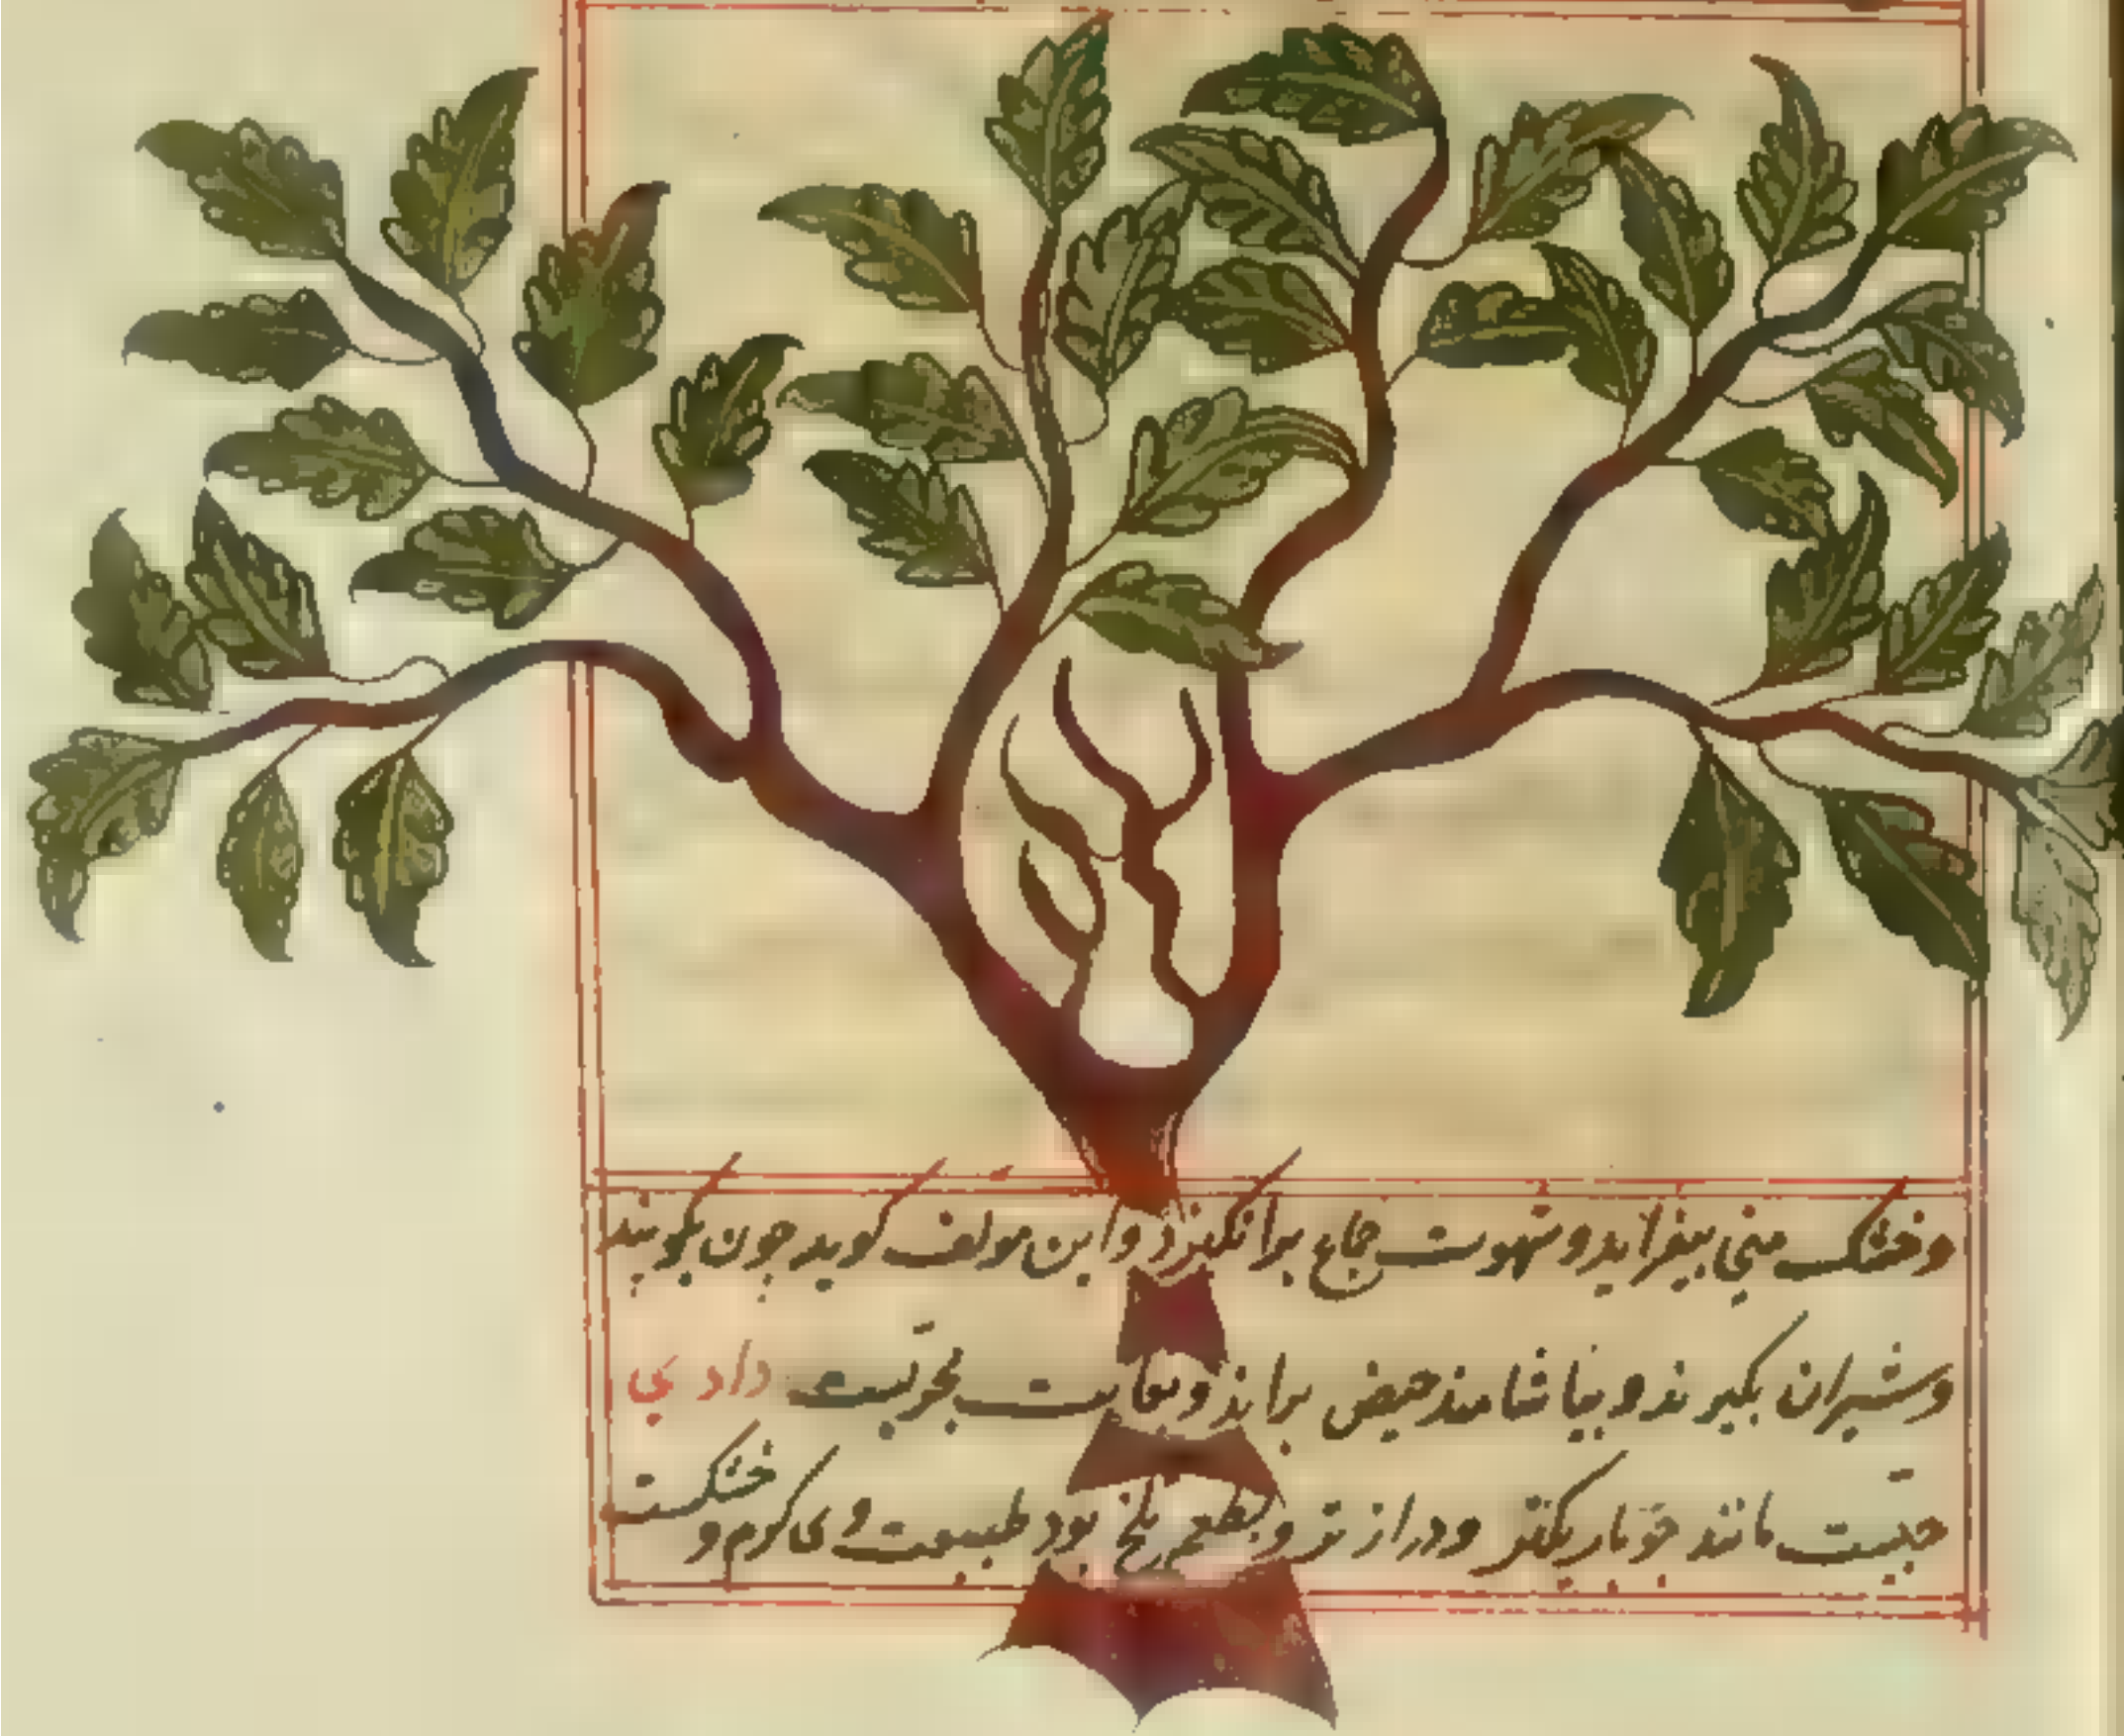 وخشک منی بیفزاید و شهوت جماع برانکیزد و این مولف کوید چون بکوبند
و شیران بکیرند و بیاشامند حیض براند و بغایت مجربست دادی
حبیست مانند جو باریکتر و درازتر و بطعم تلخ بود طبیعت وی کرم و خشکست